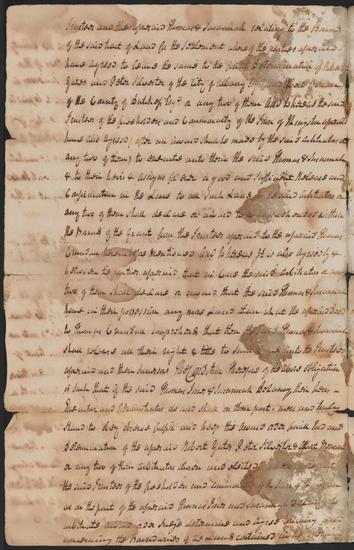 Trustees and the aforesaid Thomas & Susannah relating to the Bounds
of the said tract of Land for the Settlement whereof the parties aforesaid
have agreed to leave the same to the Determination of Robert
Yates and Peter Silvester of the City of Albany
of the County of Esqr or any two of them And Whereas the said
Trustees of the freeholders and Commonalty of the Town of Kingston aforesaid
have also agreed after an award should be made by the said arbitrators or
any two of them to execute unto them the said Thomas & Susannah
& to their heirs & assigns for ever a good and sufficient Release and
Confirmation in the Law to all such Lands said arbitrators or
any two of them shall declare or award to be comprehended within
the bounds of the Grant from the Trustees aforesaid to the aforesaid Thomas
herein before mentioned And Whereas it is also agreed by &
between the parties aforesaid that in Case the said arbitrators or any
two of them shall declare or award that the said Thomas & Susannah
have in their possession any more Land than what the aforesaid Deed
to Comprehends that then the said Thomas & Susannah
shall release all their right & title to such unto the Trustees
aforesaid and their Successors Now the Condition of the above obligation
is such that if the said Thomas Jones and Susannah his their heirs
Executors and Administrators do and shall on their part and
Stand to obey observe fulfill and keep the award order and
Determination of the aforesaid Robert Yates Peter Silvester &
or any two of them arbitrators chosen and elected
the said Trustees of the freeholders and Commonalty of the Town of
as on the part of the aforesaid Thomas Jones and Susannah
arbitrate award order Judge determine and agree
concerning the Boundaries of the Lands contained in the